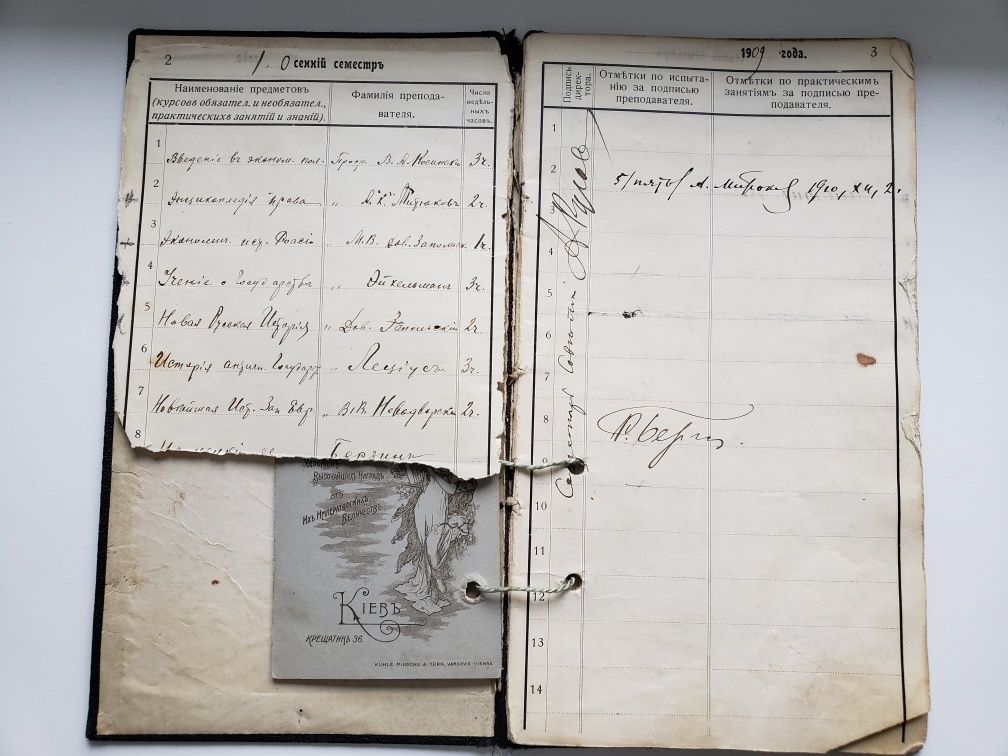 2
1. Осенній семестръ
Наименованіе предметовъ
(курсовъ обязател. и необязател.,
практическихъ занятій и знаній).
Фамилія препода-
вателя.
Число
недѣль-
ныхъ
часовъ.
1 Введеніе въ эконом. пол. Проф. В. А. Косинскі 3ч.
2 Энциклопедія права " А. К. Митюковъ 2ч.
3 Экономич. ист. Россіи " М.В. Дов. Запольск 1ч.
4 Ученіе о Государствѣ " Эйхельманъ 3ч.
5 Новая Русская Исторія " Дов. Запольскій 2ч.
6 Исторія антич. Государ " Леціусъ 3ч.
7 Новѣйшая Ист. Зап. Евр. " В.В. Новодворскі 2ч.
8 Берзинъ
УДОСТОЕНЪ
ВЫСОЧАЙШИХЪ НАГРАДЪ
ОТЪ
ИХЪ ИМПЕРАТОРСКИХЪ
ВЕЛИЧЕСТВЪ
КІЕВЪ
КРЕЩАТИКЪ 36.
KÜHLE MIKSCHE & TÜRK, VARSOVIE-VIENNE
1909 года. 3
Подпись
дирек-
тора.
Отмѣтки по испыта-
нію за подписью
преподавателя.
Отмѣтки по практическимъ
занятіямъ за подписью пре-
подавателя.
1
2 5/пять/ А. Митюковъ 1910, XII, 2.
4
5
6
7
8
9
10
11
12
13
14